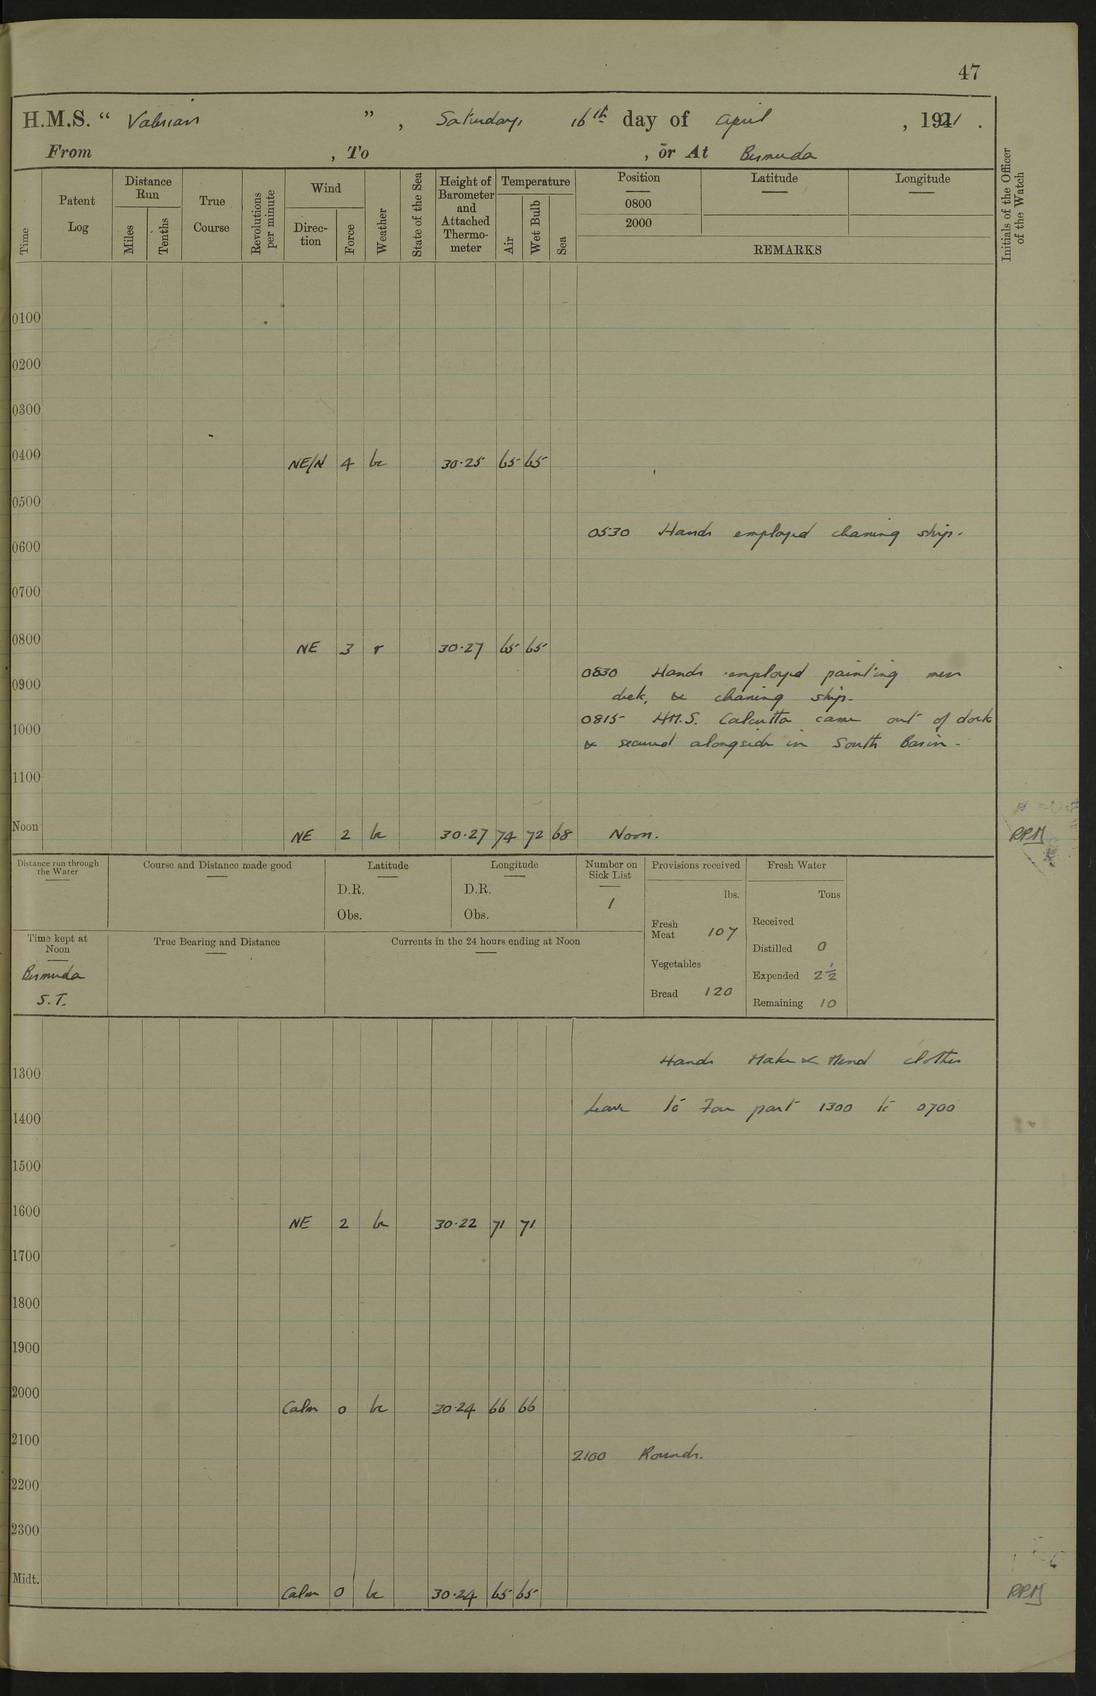 47
H.M.S. “ Valerian ” , Saturday, 16th day of April , 1921 .
From , To , or At Bermuda
Time
Patent Log
Distance Run
Miles
Tenths
True Course
Revolutions per minute
Wind
Direction
Force
Weather
State of the Sea
Height of Barometer and Attached Thermometer
Temperature
Air
Wet Bulb
Sea
Position
0800
2000
Latitude
Longitude
REMARKS
Initials of the Officer of the Watch
0100
0200
0300
0400 NE/N 4 bc 30·25 65 65
0500
0530 Hands employed cleaning ship.
0600
0700
0800 NE 3 r 30·27 65 65
0830 Hands employed painting mess
0900
deck, & cleaning ship.
0815 H.M.S. Calcutta came out of dock
1000
& secured alongside in South Basin.
1100
Noon NE 2 bc 30·27 74 72 68 Noon. RPM
Distance run through the Water
Course and Distance made good
Latitude
D.R.
Obs.
Longitude
D.R.
Obs.
Number on Sick List
1
Provisions received
lbs.
Fresh Meat 107
Vegetables
Bread 120
Fresh Water
Tons
Received
Distilled 0
Expended 2½
Remaining 10
Time kept at Noon
Bermuda
S.T.
True Bearing and Distance
Currents in the 24 hours ending at Noon
Hands Make & Mend clothes
1300
Leave to For part 1300 to 0700
1400
1500
1600 NE 2 bc 30·22 71 71
1700
1800
1900
2000 Calm 0 bc 30·24 66 66
2100
2100 Rounds.
2200
2300
Midt. Calm 0 bc 30·24 65 65 RPM